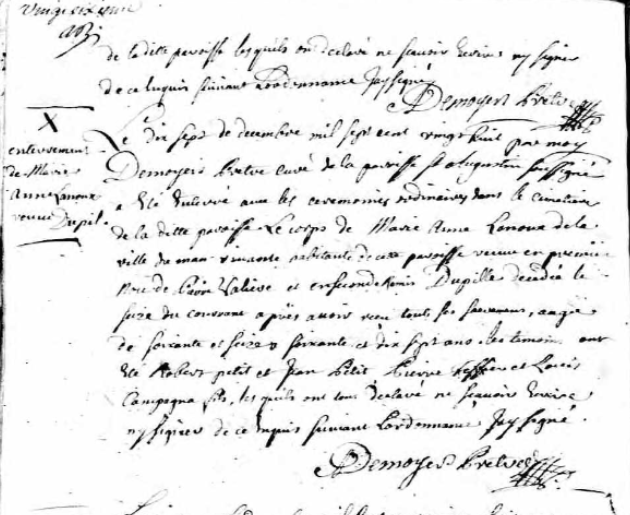 vingtsixieme
de la ditte paroisse lesquels ont declaré ne scavoir Ecrire ny signer
de ce Enquis suivant Lordonnance Jay signé
Demoyers Pretre
X
enterrement
de Marie
Anne Lanoue
veuve Dupil.
Le dix sept de decembre mil sept cent vingt huit par moy
Demoyers Pretre curé de la paroisse St Augustin soussigné
a Eté Inhumé avec les ceremonies ordinaires dans le cimetiere
de la ditte paroisse Le corps de Marie Anne Lanoue de la
ville du man vivante habitante de cette paroisse veuve en premiere
de Valiere et en seconde Dupille decedée le
seize du courant apres avoir receu touts ses sacremens, aagée
de soixante et seize a soixante et dix sept ans. les temoins ont
Eté Robert petit et Jean Petit Pierre et Louis
Campagna fils, lesquels ont tous declaré ne scavoir Ecrire
ny signer de ce enquis suivant Lordonnance Jay signé.
Demoyers Pretre